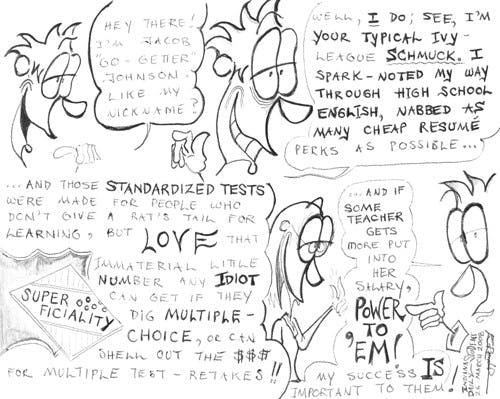 HEY THERE!
I'M JACOB
"GO-GETTER"
JOHNSON.
LIKE MY
NICKNAME?
WELL, I DO; SEE, I'M
YOUR TYPICAL IVY-
LEAGUE SCHMUCK. I
SPARK-NOTED MY WAY
THROUGH HIGH SCHOOL
ENGLISH, NABBED AS
MANY CHEAP RESUMÉ
PERKS AS POSSIBLE...
...AND THOSE STANDARDIZED TESTS
WERE MADE FOR PEOPLE WHO
DON'T GIVE A RAT'S TAIL FOR
LEARNING, BUT LOVE THAT
IMMATERIAL LITTLE
NUMBER ANY IDIOT
CAN GET IF THEY
DIG MULTIPLE-
CHOICE, OR CAN
SHELL OUT THE $$$
FOR MULTIPLE TEST-RETAKES!!
SUPER
FICIALITY
...AND IF
SOME
TEACHER
GETS
MORE PUT
INTO
HER
SALARY,
POWER
TO
'EM!
MY SUCCESS IS
IMPORTANT TO THEM!